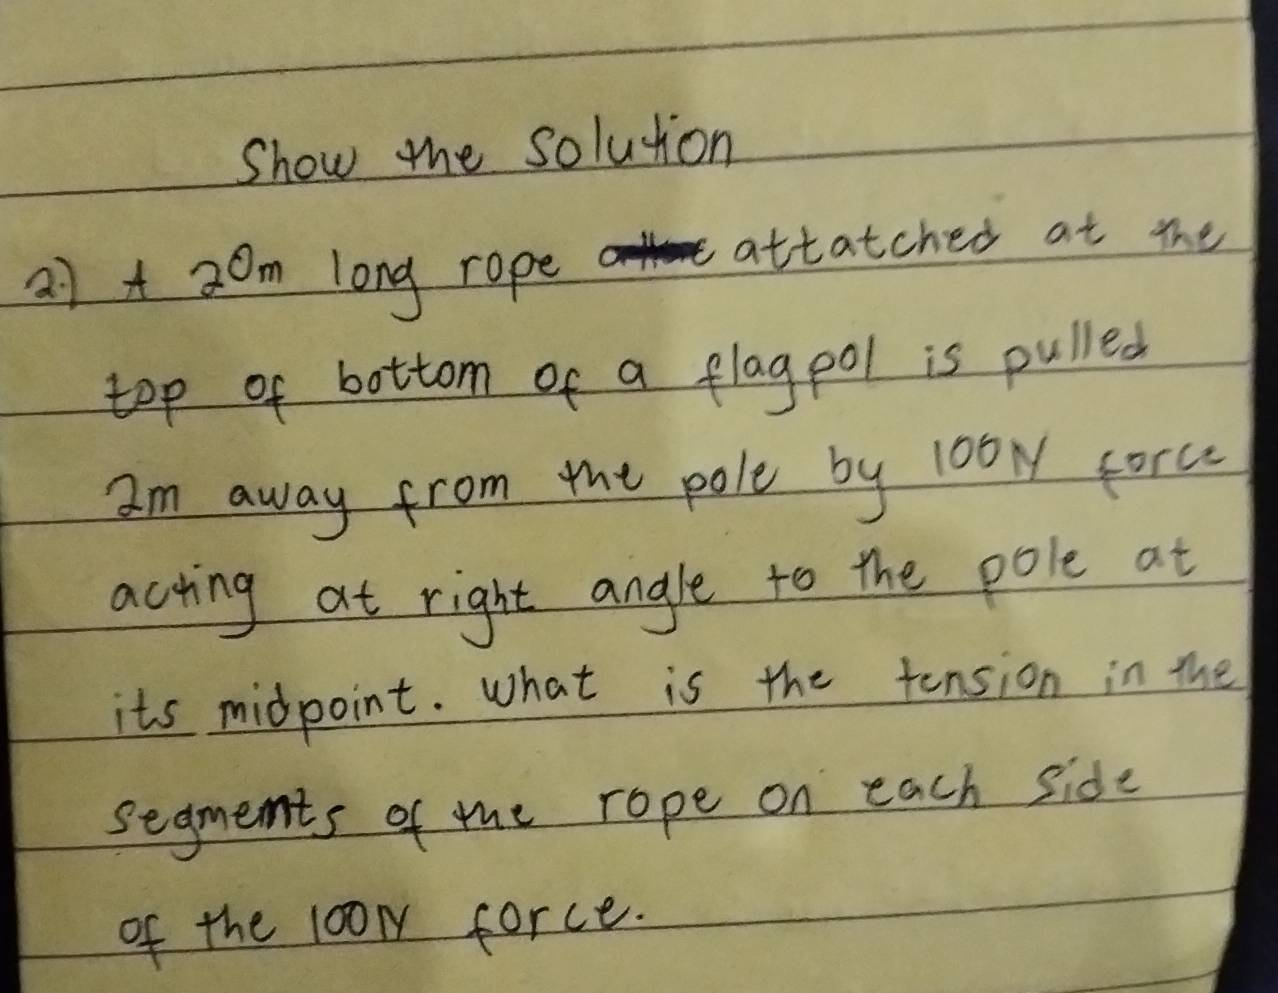 Show the solution
2.) A 20m long rope attatched at the
top of bottom of a flagpol is pulled
2m away from the pole by 100N force
acting at right angle to the pole at
its midpoint. What is the tension in the
segments of the rope on each side
of the 100N force.